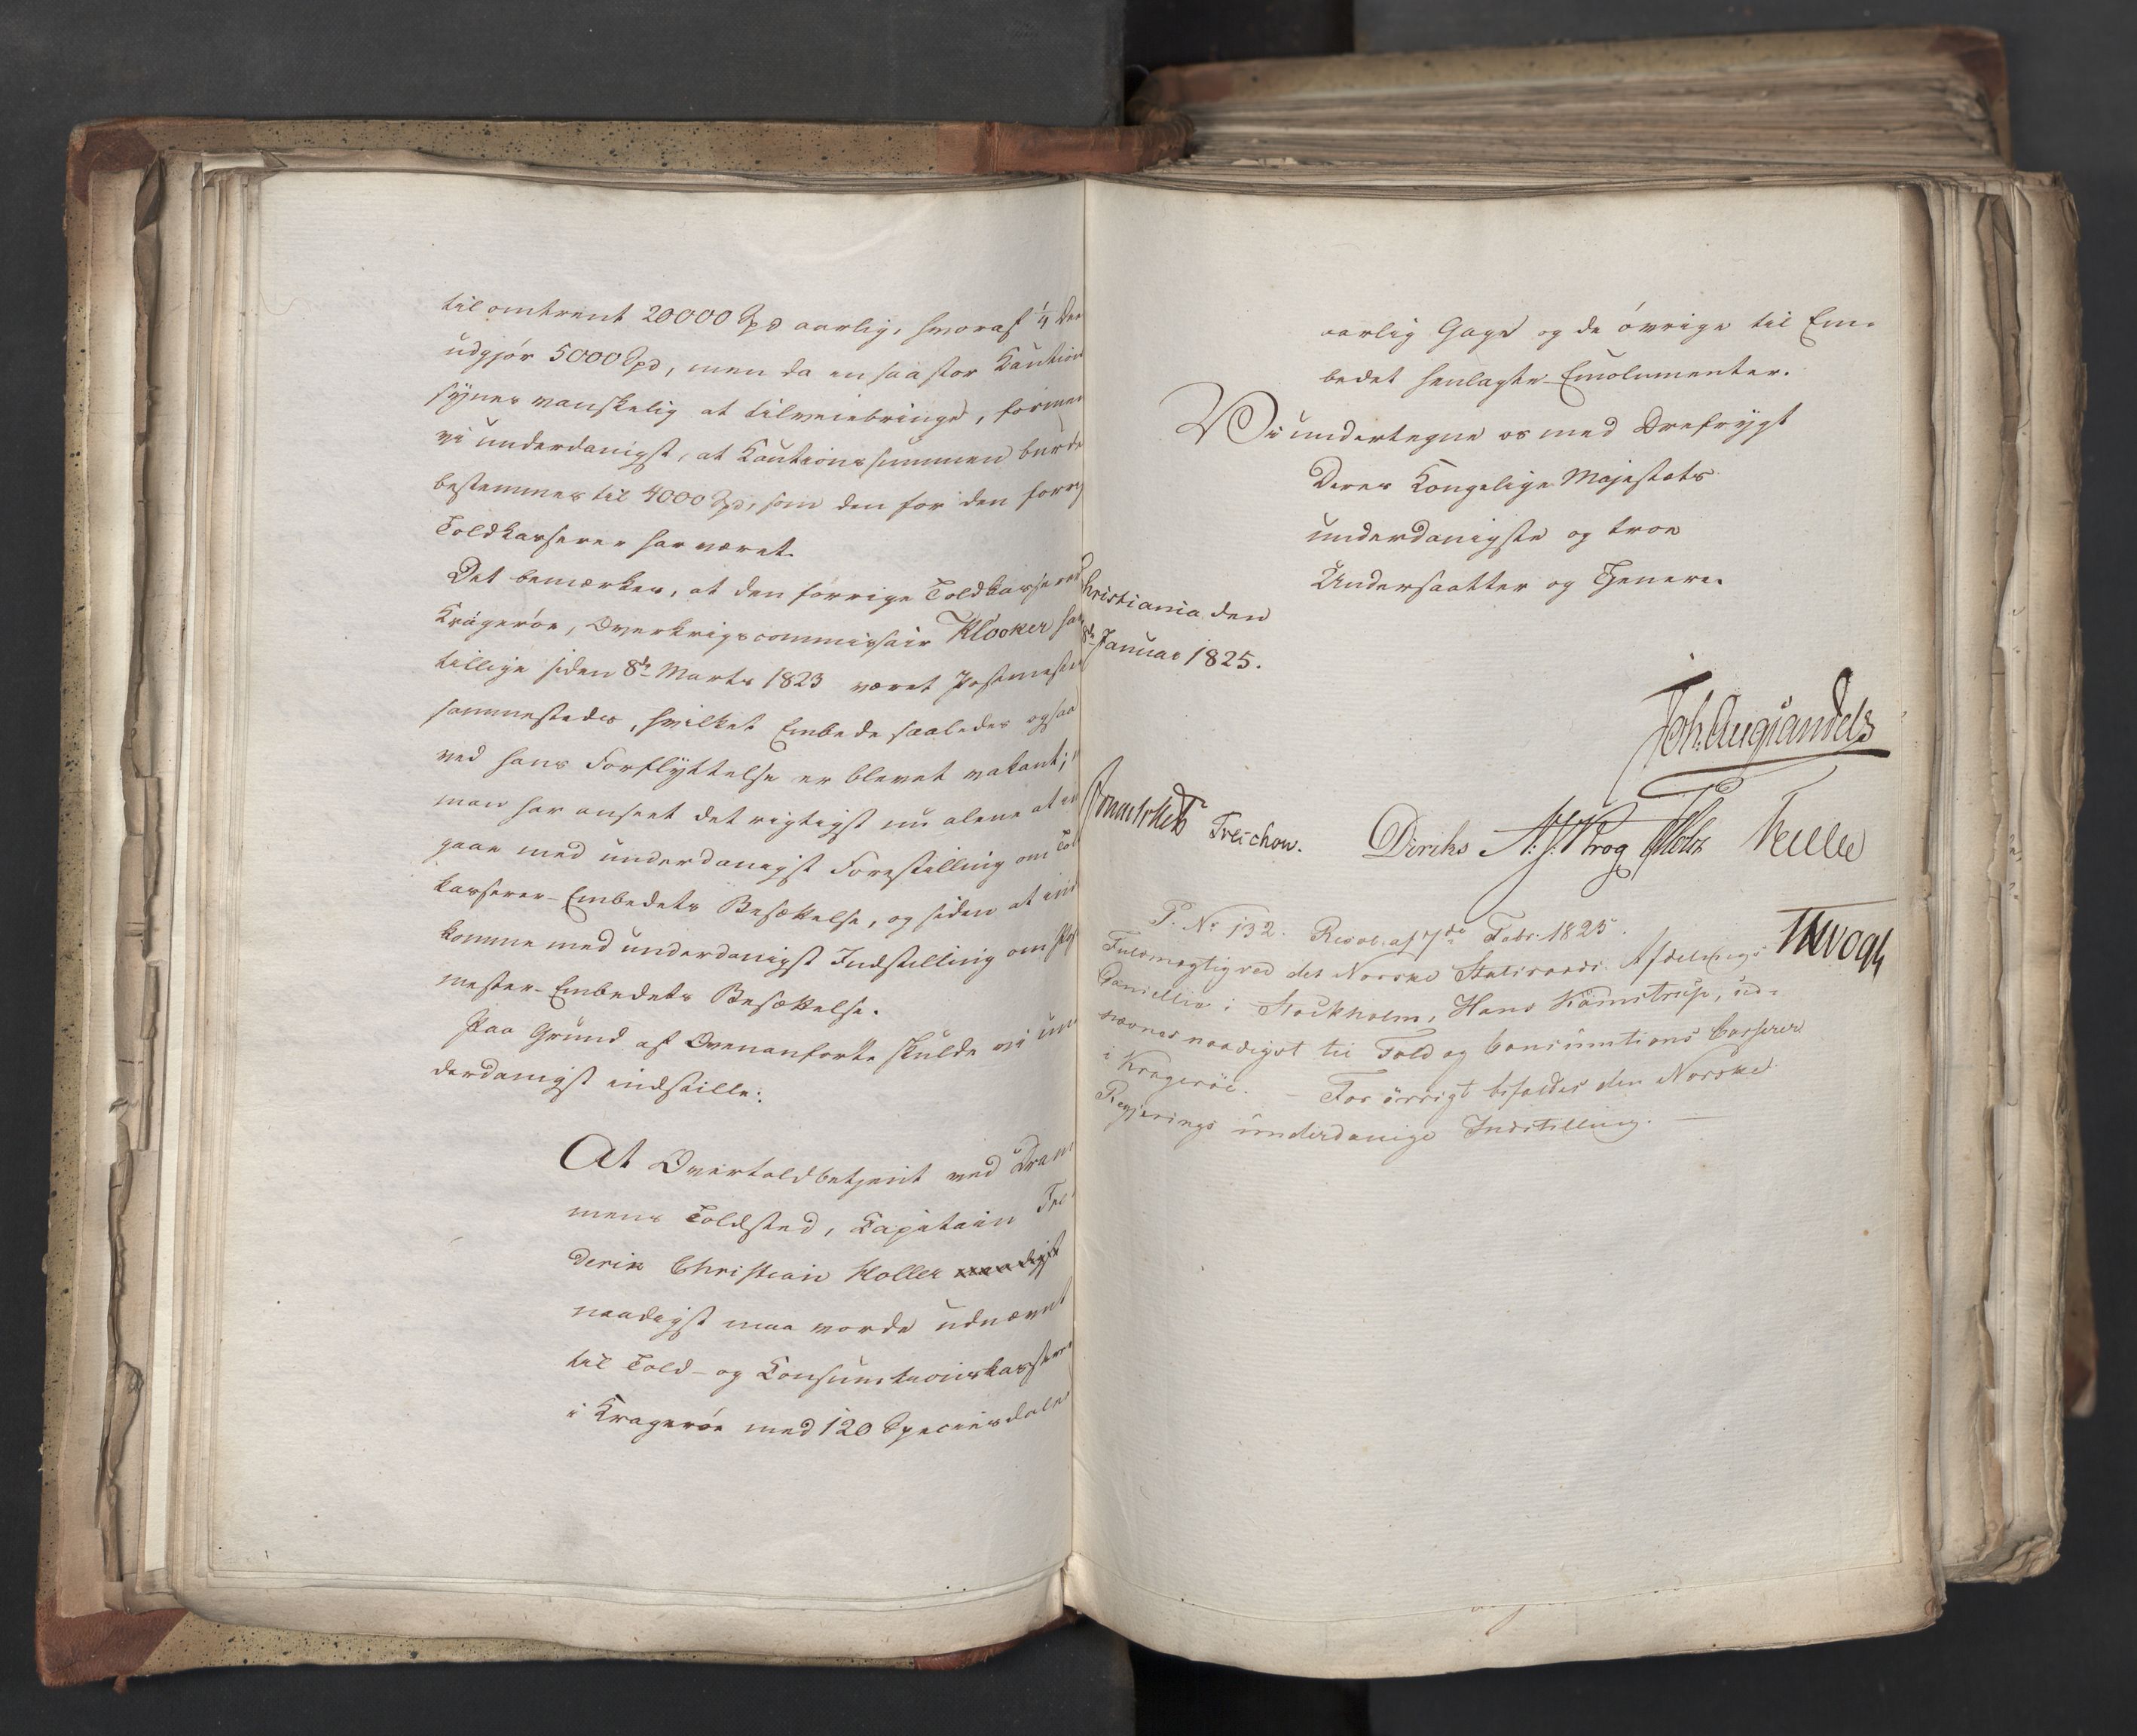 til omtrent 20000 Spd aarlig, hvoraf ¼ Deel
udgjør 5000 Spd, men da en saa stor Kaution
synes vanskelig at tilveiebringe, formene
vi underdanigst, at Kautionssummen burde
bestemmes til 4000 Spd, som den for den forrige
Toldkasserer har været.
Det bemærkes, at den forrige Toldkasserer i
Kragerøe, Overkrigscommissair Klocker har
tillige siden 8de Marts 1823 været Postmester
sammesteds, hvilket Embede saaledes ogsaa
ved hans Forflyttelse er blevet vakant;
man har anseet det rigtigst nu alene at ind
gaae med underdanigst Forestilling om Told
kasserer-Embedets Besættelse, og siden at ind
komme med underdanigst Indstilling om Post
mester-Embedets Besættelse.
Paa Grund af Ovenanførte skulde vi un
derdanigst indstille:
At Overtoldbetjent ved Dram
mens Toldsted, Capitain Fre
derik Christian Holler naadigst
naadigst maa vorde udnævnt
til Told- og Consumtionskasserer
i Kragerøe med 120 Speciesdaler
aarlig Gage og de øvrige til Em-
bedet henlagte Emolumenter.
Vi undertegne os med Ærefrygt
Deres Kongelige Majestæts
underdanigste og troe
Undersaatter og Tjenere.
Christiania den
8de Januar 1825.
Joh. Aug. Sandels
Jonas Collett Treschow. Diriks A. J. Krog Motz Fasting
P. No 132. Resol. af 7de Febr. 1825.
Th Vogt
Fuldmægtig ved det Norske Statsraads Afdelings
Cancellie i Stockholm, Hans Kamstrup, ud-
nævnes naadigst til Told og Consumtions Casserer
i Kragerøe. – For øvrigt bifaldes den Norske
Regjerings underdanige Indstilling. –